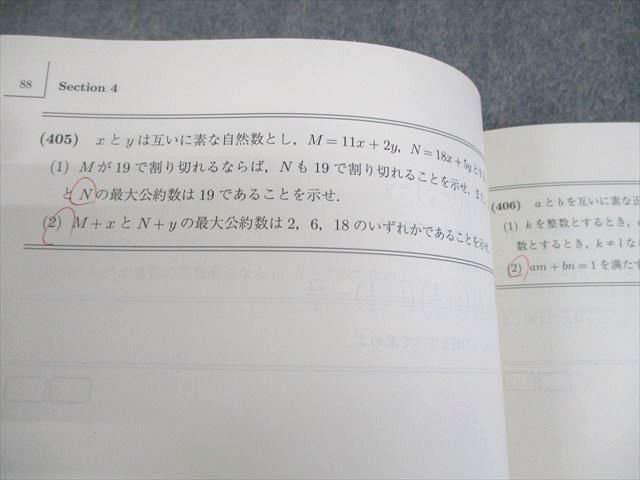 88 Section 4
(405) xとyは互いに素な自然数とし，M＝11x＋2y，N＝18x＋5yと
(1) Mが19で割り切れるならば，Nも19で割り切れることを示せ．また，
とNの最大公約数は19であることを示せ．
(2) M＋xとN＋yの最大公約数は2，6，18のいずれかであることを示せ
(406) aとbを互いに素な正
(1) kを整数とするとき，a
数とするとき，k≠lな
(2) am＋bn＝1を満たす